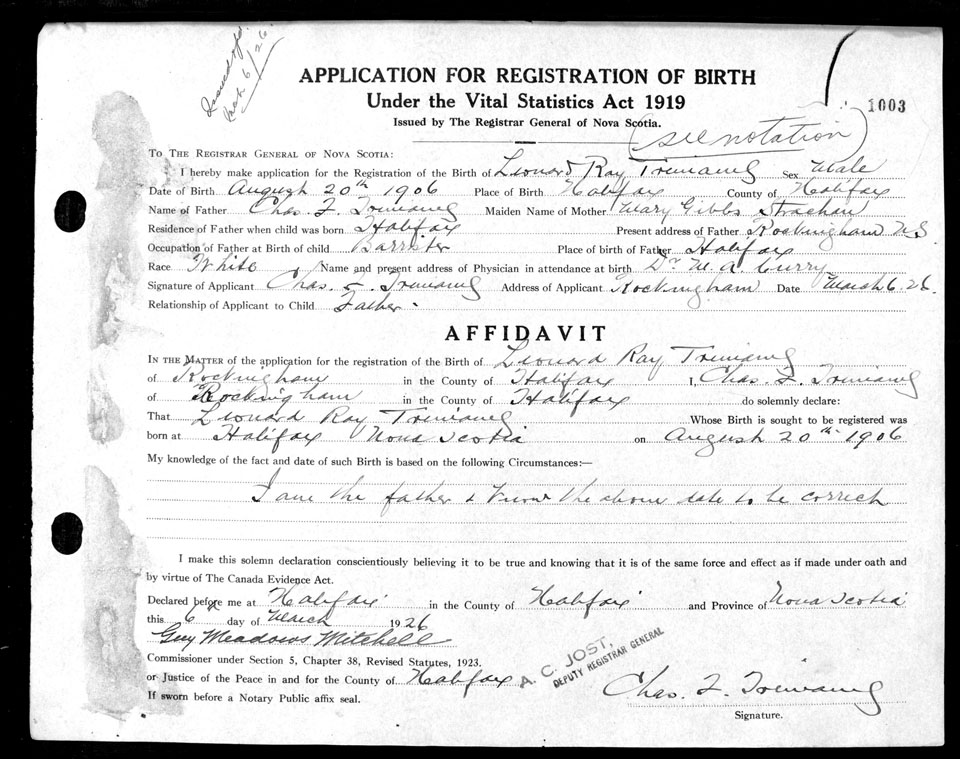 Issued
Mch 6/26
APPLICATION FOR REGISTRATION OF BIRTH
Under the Vital Statistics Act 1919
1003
Issued by The Registrar General of Nova Scotia.
(see notation)
TO THE REGISTRAR GENERAL OF NOVA SCOTIA:
I hereby make application for the Registration of the Birth of Leonard Ray Tremaine Sex Male
Date of Birth August 20th 1906 Place of Birth Halifax County of Halifax
Name of Father Chas. F. Tremaine Maiden Name of Mother Mary Gibbs Strachan
Residence of Father when child was born Halifax Present address of Father Rockingham N.S.
Occupation of Father at Birth of child Barrister Place of birth of Father Halifax
Race White Name and present address of Physician in attendance at birth Dr. M. A. Curry
Signature of Applicant Chas. F. Tremaine Address of Applicant Rockingham Date March 6. 26.
Relationship of Applicant to Child Father.
AFFIDAVIT
IN THE MATTER of the application for the registration of the Birth of Leonard Ray Tremaine
of Rockingham in the County of Halifax I, Chas. F. Tremaine
of Rockingham in the County of Halifax do solemnly declare:
That Leonard Ray Tremaine Whose Birth is sought to be registered was
born at Halifax Nova Scotia on August 20th 1906
My knowledge of the fact and date of such Birth is based on the following Circumstances:—
I am the father & know the above date to be correct
I make this solemn declaration conscientiously believing it to be true and knowing that it is of the same force and effect as if made under oath and
by virtue of The Canada Evidence Act.
Declared before me at Halifax in the County of Halifax and Province of Nova Scotia
this 6th day of March 1926
Guy Meadows Mitchell
Commissioner under Section 5, Chapter 38, Revised Statutes, 1923.
or Justice of the Peace in and for the County of Halifax
A. C. JOST,
DEPUTY REGISTRAR GENERAL
If sworn before a Notary Public affix seal.
Chas. F. Tremaine
Signature.